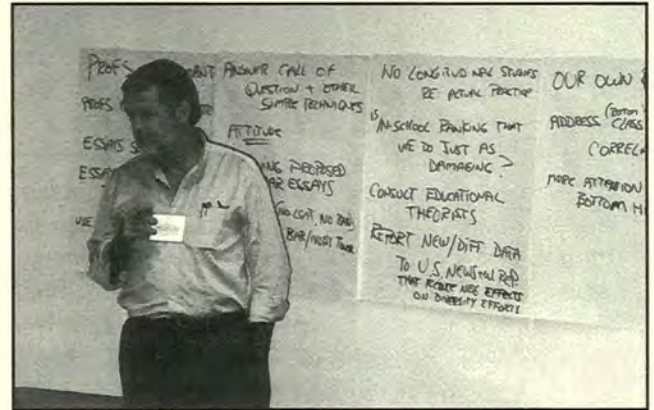 PROFS
ANT
PROFS
ESSAYS
ESSAY
ANSWER CALL OF
QUESTION + OTHER
SIMPLE TECHNIQUES
ATTITUDE
ING PROPOSED
AR ESSAYS
NO LSAT, NO BAR,
BAR/MOST
NO LONGITUDINAL STUDIES
RE ACTUAL PRACTICE
IS
IN-SCHOOL RANKING THAT
WE DO JUST AS
DAMAGING?
CONSULT EDUCATIONAL
THEORISTS
REPORT NEW/DIFF DATA
TO U.S. NEWS + W REP.
THAT REDUCE NEG EFFECTS
ON DIVERSITY EFFORTS
OUR OWN
(BOTTOM
ADDRESS CLASS
CORREL
MORE ATTENTION
BOTTOM H